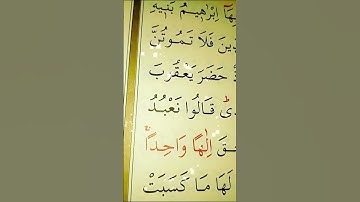 إِبْرَاهِيمُ بَنِيهِ
فَلَا تَمُوتُنَّ
حَضَرَ يَعْقُوبَ
قَالُوا نَعْبُدُ
إِلَٰهًا وَاحِدًا
لَهَا مَا كَسَبَتْ